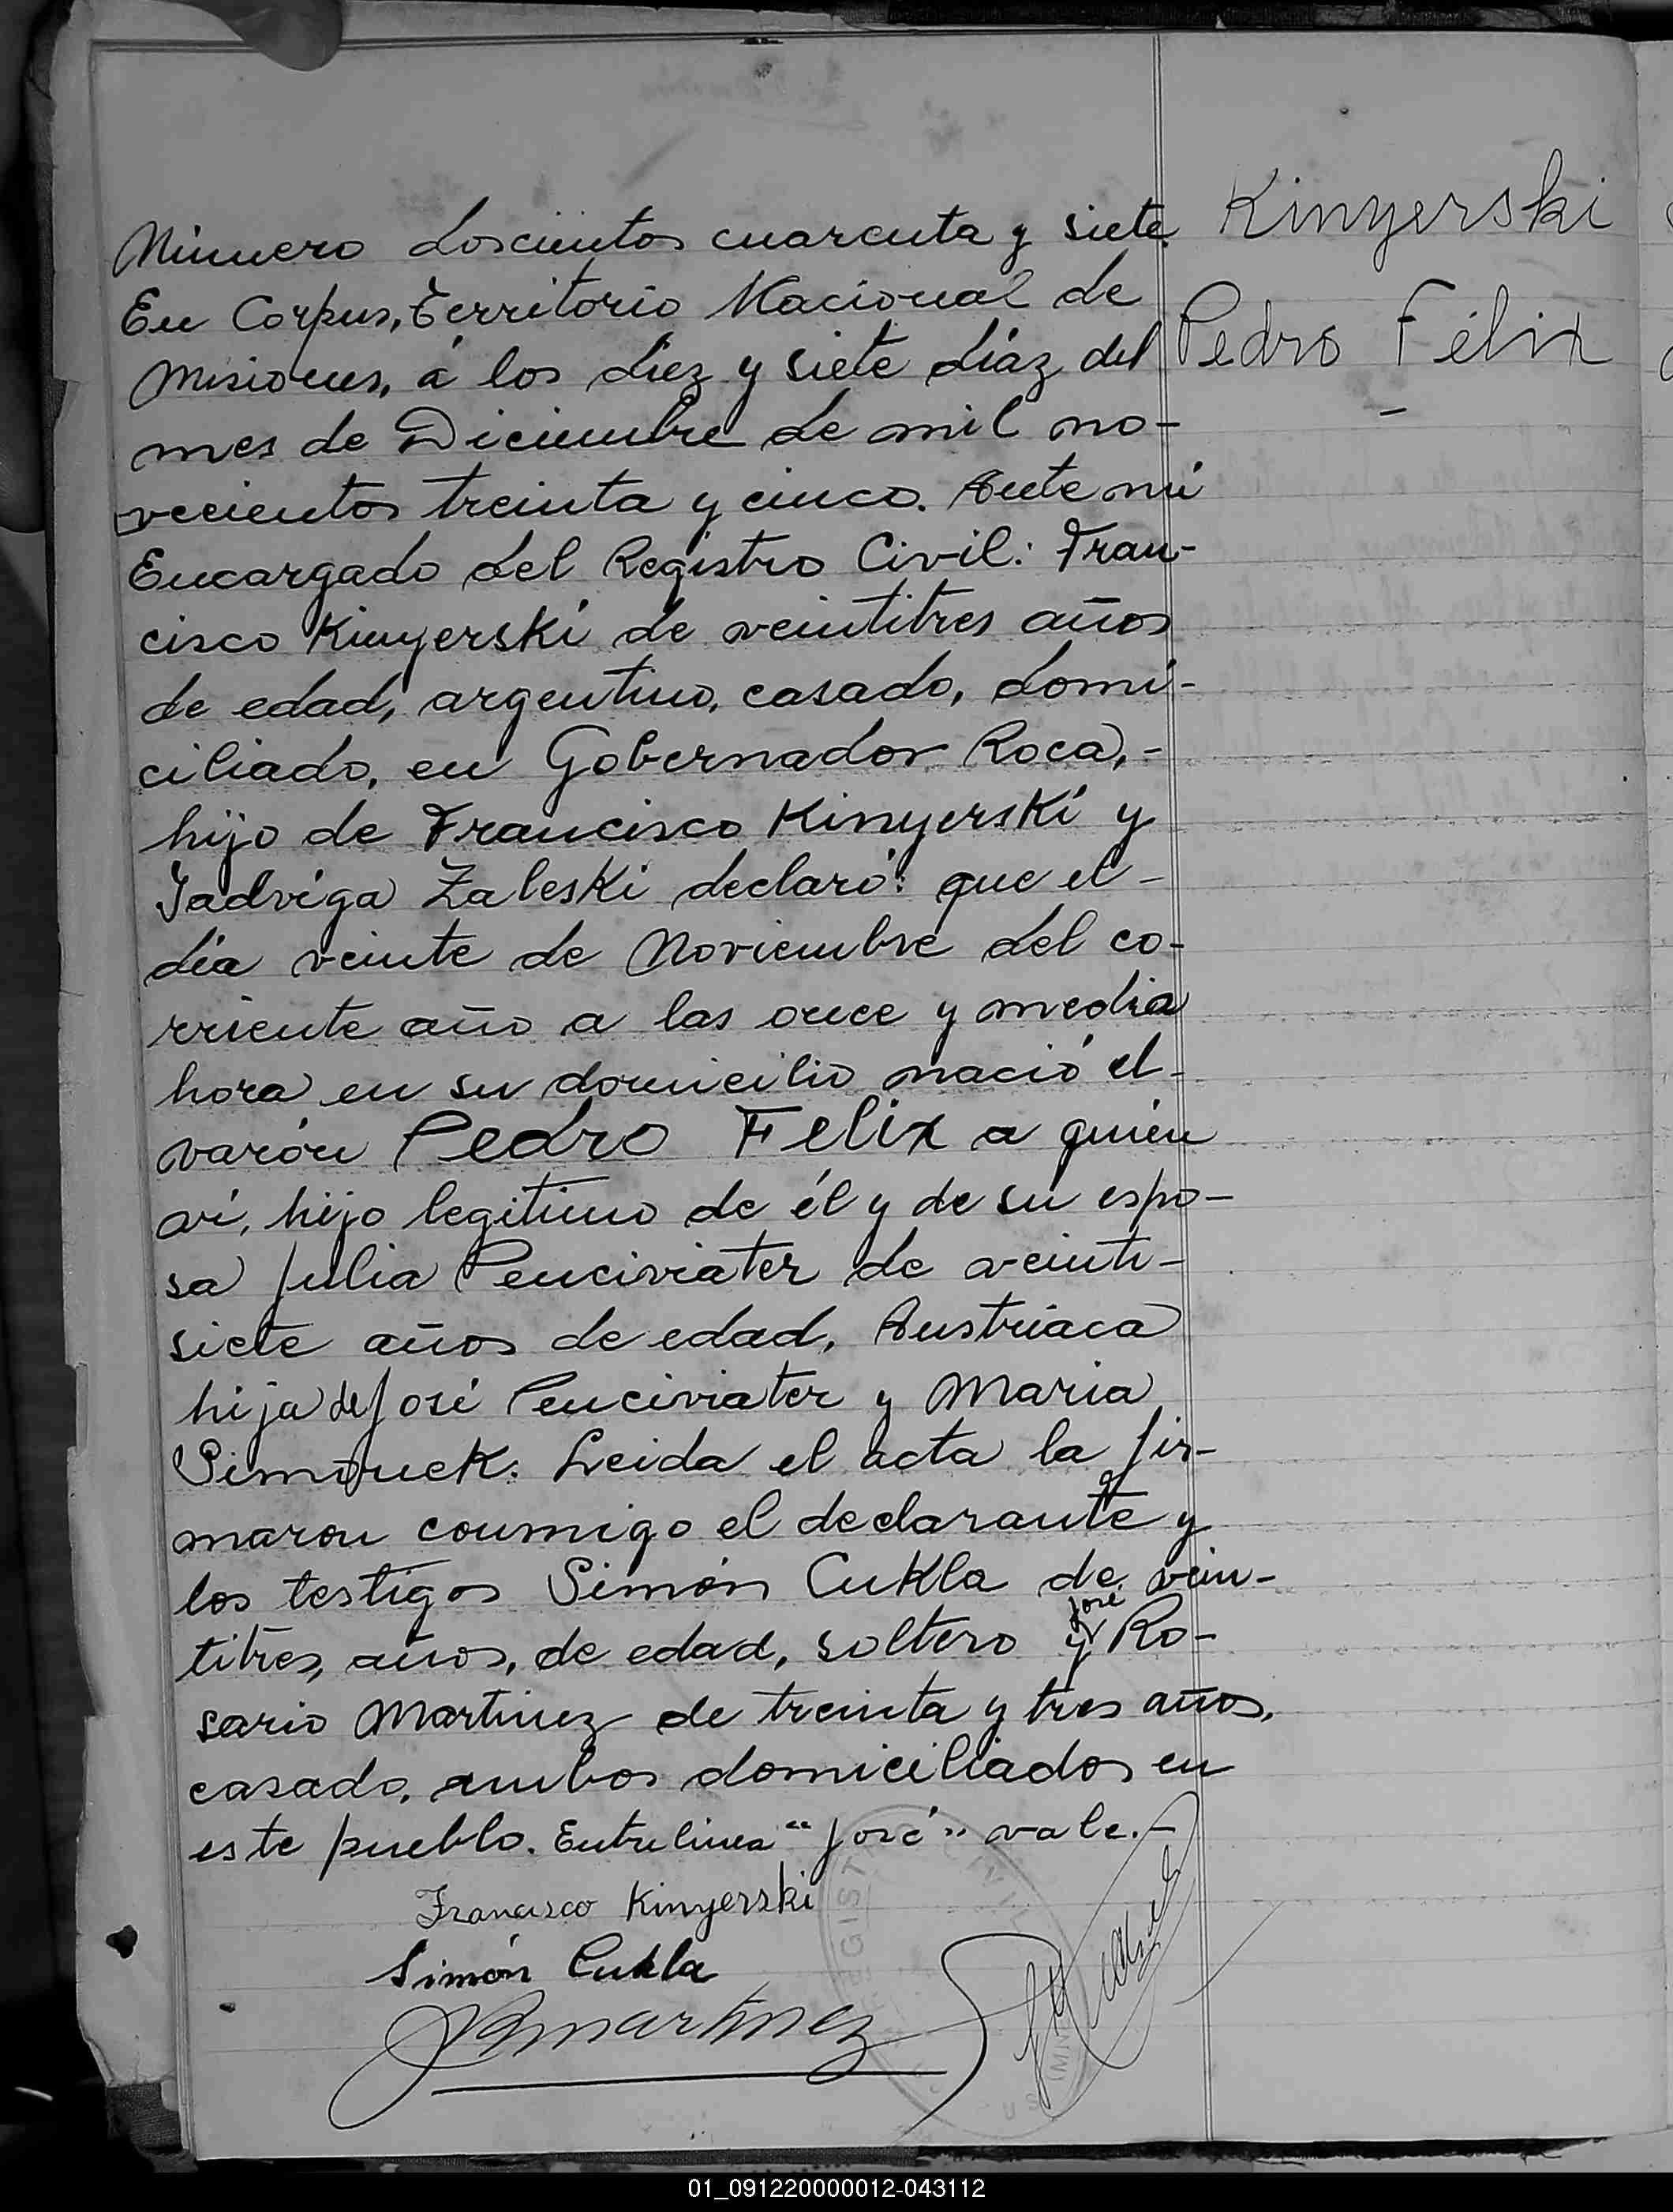 Kinyerski
Pedro Félix
Número doscientos cuarenta y siete.
En Corpus, Territorio Nacional de
Misiones, á los diez y siete díaz del
mes de Diciembre de mil no-
vecientos treinta y cinco. Ante mí
Encargado del Registro Civil: Fran-
cisco Kinyerski de veintitres años
de edad, argentino, casado, domi-
ciliado, en Gobernador Roca, -
hijo de Francisco Kinyerski y
Jadviga Zaleski declaró: que el -
día veinte de Noviembre del co-
rriente año a las once y media
hora en su domicilio nació el -
varón Pedro Felix a quién
vi, hijo legitimo de él y de su espo-
sa Julia Penciviater de veinti-
siete años de edad, Austriaca
hija de José Penciviater y Maria
Leida el acta la fir-
maron conmigo el declarante y
los testigos Simón Cukla de vein-
titres, años, de edad, soltero y José Ro-
sario Martinez de treinta y tres años,
casado, ambos domiciliados en
este pueblo. Entrelinea "José" vale.-
Francisco Kinyerski
Simón Cukla
JRMartinez
01_091220000012-043112